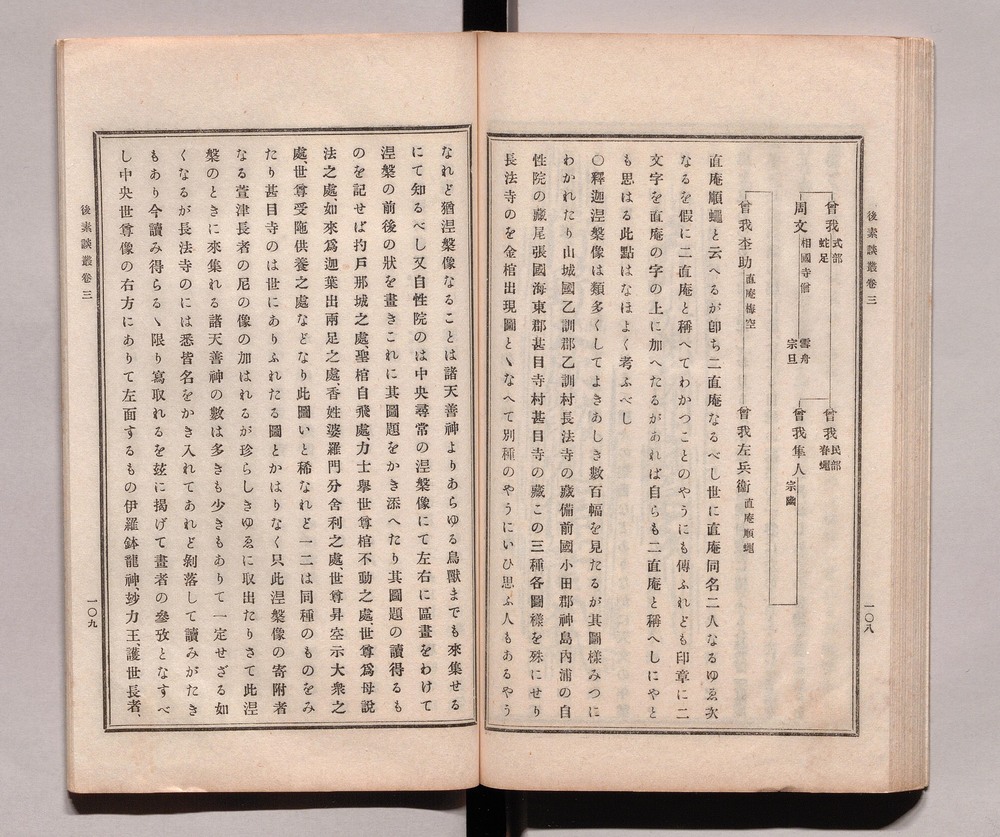 後素談叢卷三
一〇八
曾我式部蛇足
曾我民部春蠅
周文相國寺僧
雪舟
宗旦
曾我隼人宗幽
曾我杢助直庵梅空
曾我左兵衞直庵順蠅
直庵順蠅と云へるが卽ち二直庵なるべし世に直庵同名二人なるゆゑ次
なるを假に二直庵と稱へてわかつことのやうにも傳ふれども印章に二
文字を直庵の字の上に加へたるがあれば自らも二直庵と稱へしにやと
も思はる此點はなほよく考ふべし
〇釋迦涅槃像は類多くしてよきあしき數百幅を見たるが其圖樣みつに
わかれたり山城國乙訓郡乙訓村長法寺の藏備前國小田郡神島內浦の自
性院の藏尾張國海東郡甚目寺村甚目寺の藏この三種各圖樣を殊にせり
長法寺のを金棺出現圖とヽなへて別種のやうにいひ思ふ人もあるやう
なれど猶涅槃像なることは諸天善神よりあらゆる鳥獸までも來集せる
にて知るべし又自性院のは中央尋常の涅槃像にて左右に區畫をわけて
涅槃の前後の狀を畫きこれに其圖題をかき添へたり其圖題の讀得るも
のを記せば拘戶那城之處、聖棺自飛處、力士擧世尊棺不動之處、世尊爲母說
法之處、如來爲迦葉出兩足之處、香姓婆羅門分舍利之處、世尊昇空示大衆之
處、世尊受陁供養之處などなり此圖いと稀なれど一二は同種のものをみ
たり甚目寺のは世にありふれたる圖とかはりなく只此涅槃像の寄附者
なる萱津長者の尼の像の加はれるが珍らしきゆゑに取出たりさて此涅
槃のときに來集れる諸天善神の數は多きも少きもありて一定せざる如
くなるが長法寺のには悉皆名をかき入れてあれど剝落して讀みがたき
もあり今讀み得らるヽ限り寫取れるを玆に揭げて畫者の參攷となすべ
し中央世尊像の右方にありて左面するもの伊羅鉢龍神、玅力王、護世長者、
後素談叢卷三
一〇九